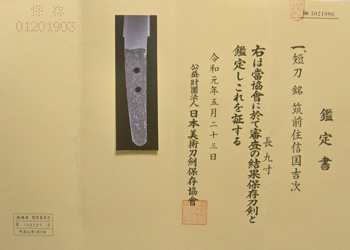 鑑定書
一、短刀 銘 筑前住信国吉次
長 九寸
右は當協會に於て審査の結果保存刀剣と
鑑定しこれを証する
令和元年五月二十三日
公益財団法人 日本美術刀剣保存協會
保存
01201903
№ 3021006